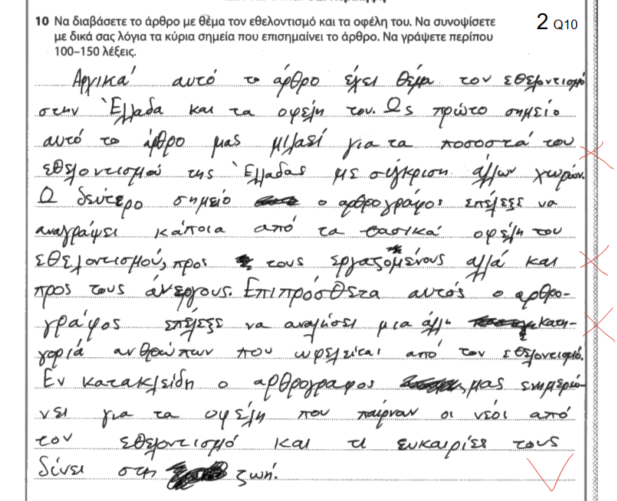 10 Να διαβάσετε το άρθρο με θέμα τον εθελοντισμό και τα οφέλη του. Να συνοψίσετε
με δικά σας λόγια τα κύρια σημεία που επισημαίνει το άρθρο. Να γράψετε περίπου
100–150 λέξεις.
2 Q10
Αρχικά αυτό το άρθρο έχει θέμα τον εθελοντισμό
στην Έλλαδα και τα οφέλη του. Ως πρώτο σημείο
αυτό το άρθρο μας μιλαεί για τα ποσοστά του
εθελοντισμού της Έλλαδας με σύγκριση άλλων χωρών.
Ο δεύτερο σημείο ο αρθρογράφος επέλεξε να
αναγράψει κάποια από τα βασικά οφέλη του
εθελοντισμού, προς τους εργαζομένους αλλά και
προς τους άνεργους. Επιπρόσθετα αυτός ο αρθρο-
γράφος επέλεξε να αναλήσει μια άλλη κατη-
γοριά ανθρώπων που ωφελείται από τον εθελοντισμό.
Εν κατακλείδη ο αρθρογραφος μας ενημερώ-
νει για τα οφέλη που παίρναν οι νέοι από
τον εθελοντισμό και τι ευκαιρίες τους
δίνει στη ζωή.